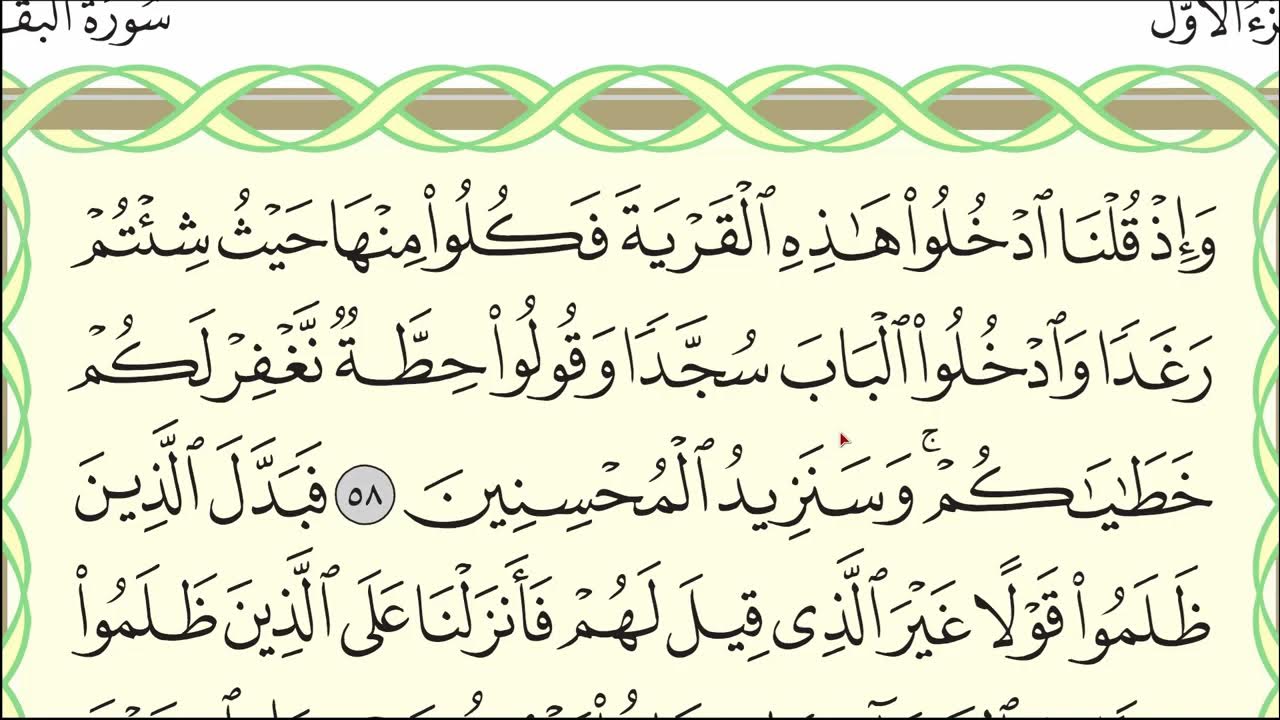 سُورَةُ البَقَ
الأَوَّل
وَإِذْ قُلْنَا ٱدْخُلُوا۟ هَـٰذِهِ ٱلْقَرْيَةَ فَكُلُوا۟ مِنْهَا حَيْثُ شِئْتُمْ
رَغَدًا وَٱدْخُلُوا۟ ٱلْبَابَ سُجَّدًا وَقُولُوا۟ حِطَّةٌ نَّغْفِرْ لَكُمْ
خَطَـٰيَـٰكُمْ ۚ وَسَنَزِيدُ ٱلْمُحْسِنِينَ ٥٨ فَبَدَّلَ ٱلَّذِينَ
ظَلَمُوا۟ قَوْلًا غَيْرَ ٱلَّذِى قِيلَ لَهُمْ فَأَنزَلْنَا عَلَى ٱلَّذِينَ ظَلَمُوا۟